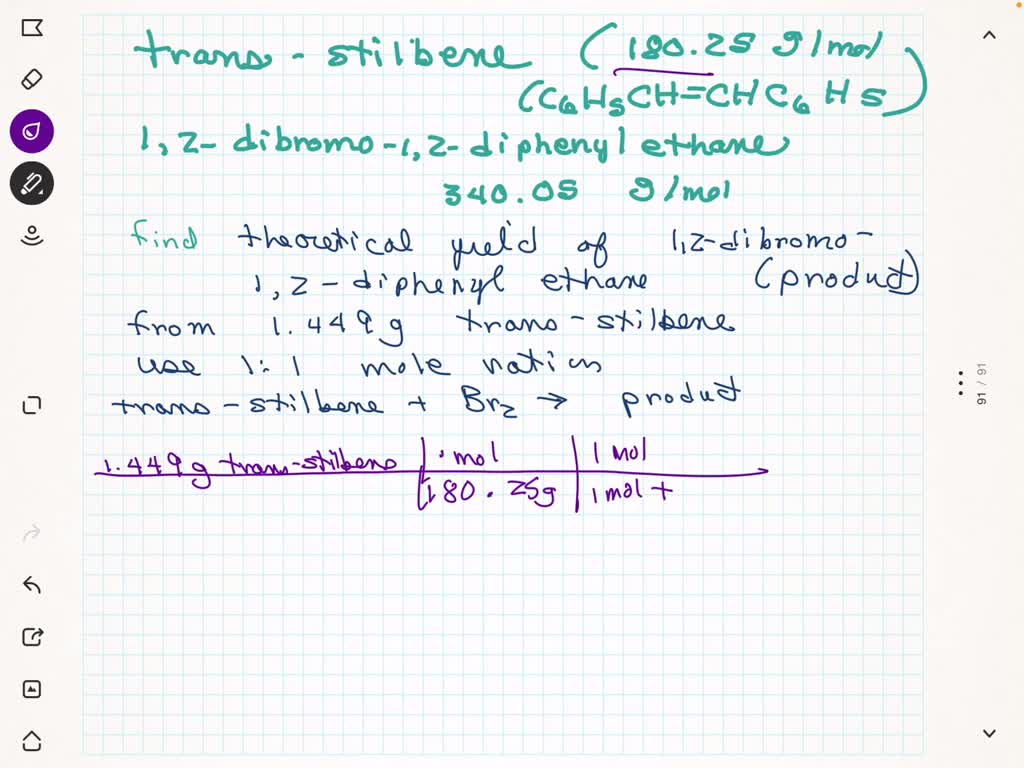 trans - stilbene (180.25 g/mol)
(C6H5CH=CHC6H5)
1,2-dibromo-1,2-diphenyl ethane
340.05 g/mol
find theoretical yield of 1,2-dibromo-
1,2-diphenyl ethane (product)
from 1.449g trans-stilbene
use 1:1 mole ratios
trans-stilbene + Br2 → product
1.449 g trans-stilbene | 1 mol | 1 mol
180.25g | 1 mol t
91 / 91